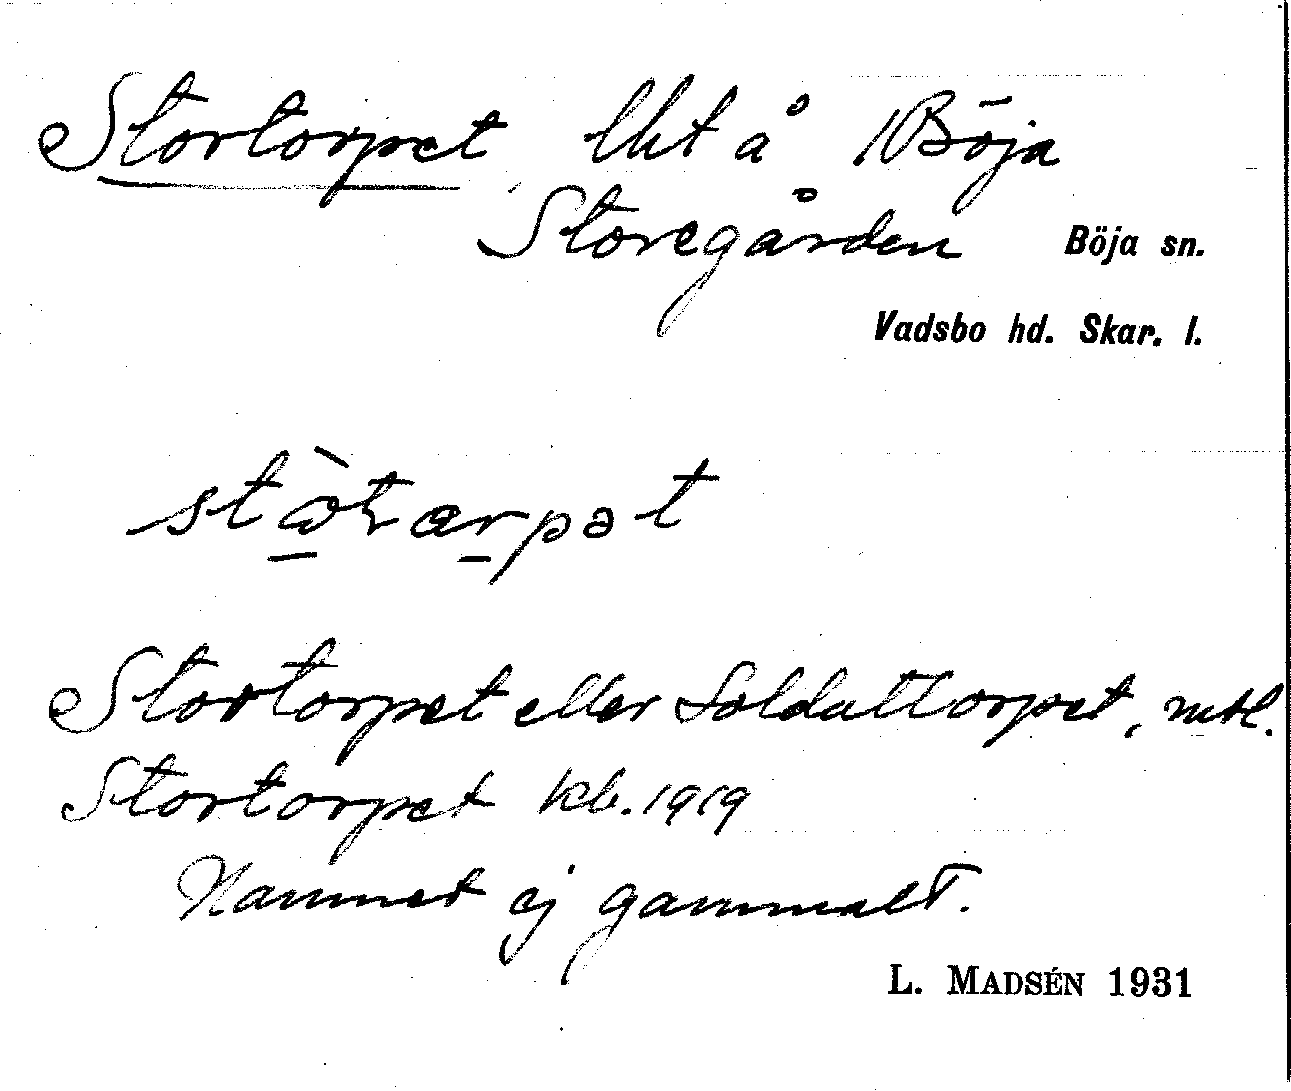 Stortorpet lht å 1 Böja
Storegården Böja sn.
Vadsbo hd. Skar. l.
Stortorpet eller Soldattorpet, mtl.
Stortorpet kb. 1919
Namnet ej gammalt.
L. MADSÉN 1931